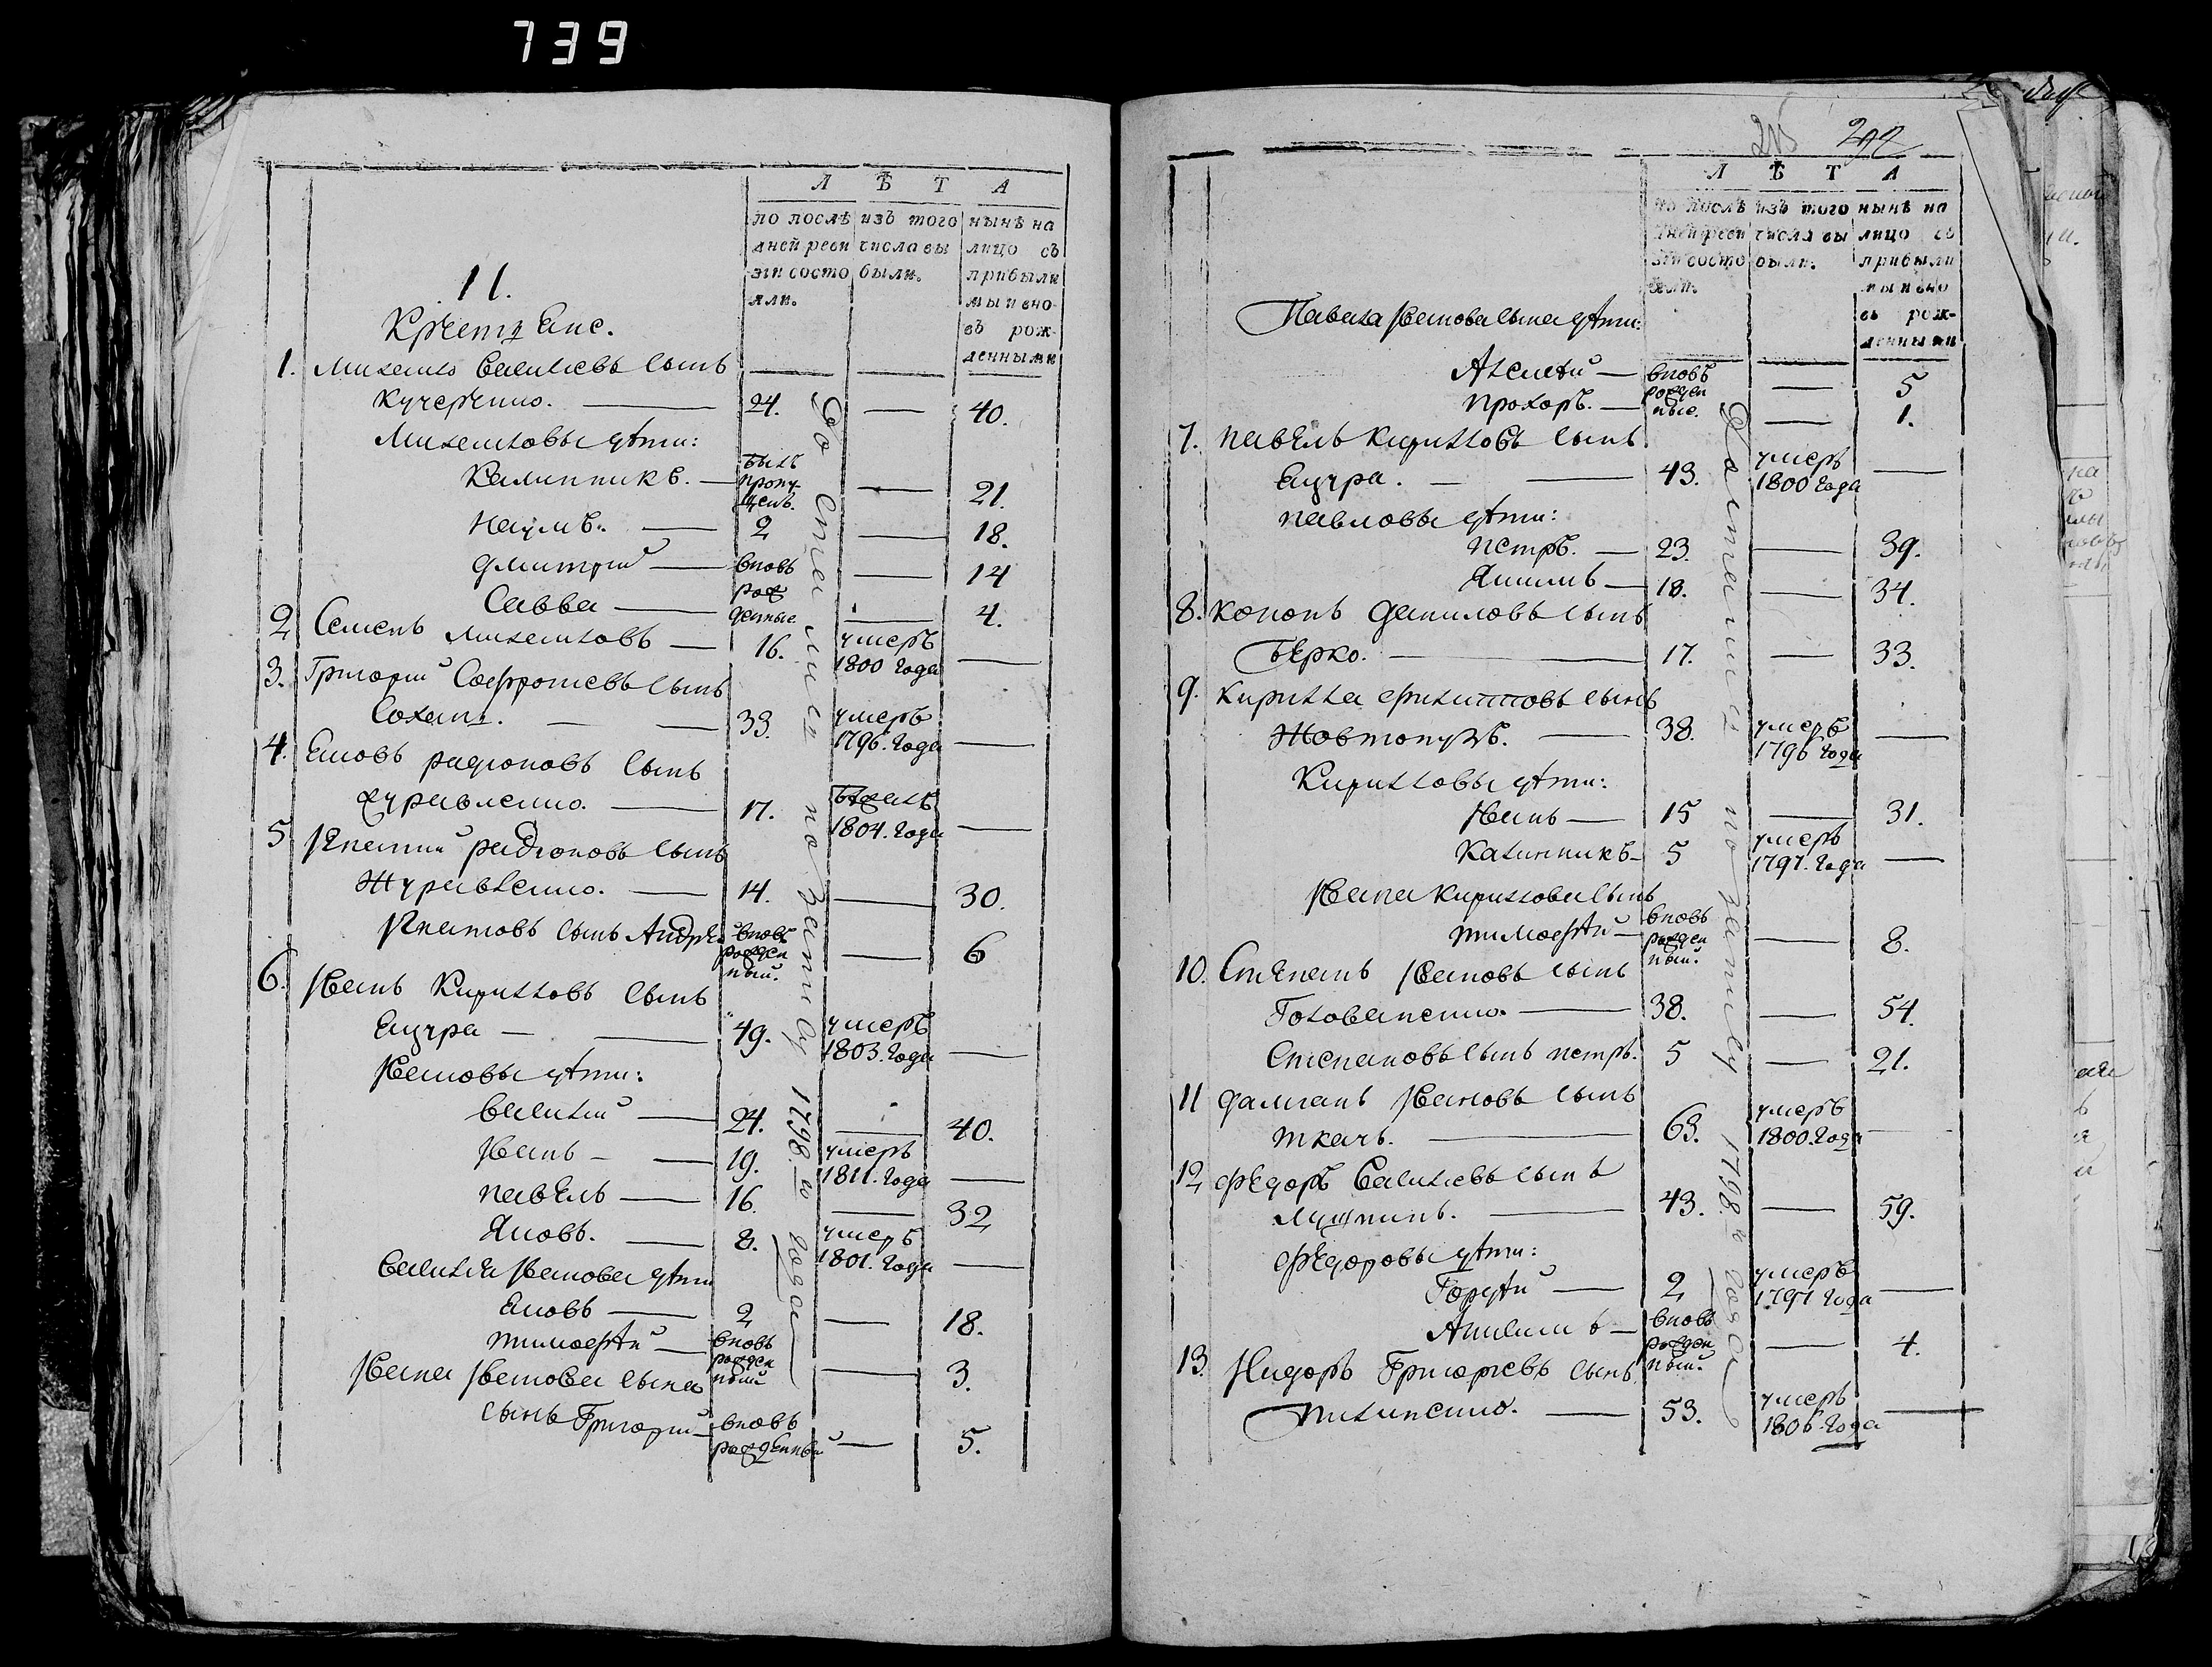 739
Л Ѣ Т А
по послѣ изъ того нынѣ на
дней реви числа вы лицо съ
зіи состо были. прибыли
яли. мы и вно
въ рож-
денными
11.
1. Михайло Васильевъ сынъ
Кучеренко. — 24. — 40.
Михайловы дѣти:
Калинникъ. — былъ пропущенъ. — 21.
Наумъ. — 2 — 18.
Дмитрій — вновь — 14
Савва — рожденные — 4.
2 Семенъ Михайловъ — 16. умеръ 1800 Года —
3. Григорий Софроніевъ сынъ
33. умеръ 1796. Года —
4. Яковъ Радіоновъ сынъ
Журавленко. — 17. бѣжалъ 1804. Года —
5 Игнатий Радіоновъ сынъ
Журавленко. — 14. — 30.
Игнатовъ сынъ Андрей вновь рожденный. — 6
6. Иванъ Кирилловъ сынъ
49. умеръ 1803. Года —
Ивановы дѣти:
Василий — 24. — 40.
Иванъ — 19. умеръ 1811. Года —
Павелъ — 16. — 32
Яковъ. — 8. умеръ 1801. Года —
Василья Иванова дѣти
Яковъ — 2 — 18.
Тимофѣй — вновь рожденный — 3.
Ивана Иванова сына
сынъ Григорий — вновь рожденный — 5.
1798. го года
215 292
Л Ѣ Т А
по послѣ изъ того нынѣ на
дней реви числа вы лицо съ
зіи состо были. прибыли
яли. мы и вно
въ рож-
денными
Павела Иванова сына дѣти:
Алексѣй — вновь — 5
Прохоръ. — рожденные. — 1.
7. Павелъ Кирилловъ сынъ
43. умеръ 1800 Года —
Павловы дѣти:
Петръ. — 23. — 39.
Якимъ — 18. — 34.
8. Кононъ Даниловъ сынъ
Бѣрко. — 17. — 33.
9. Кирилла Филипповъ сынъ
Жовтопузъ. — 38. умеръ 1796 Года —
Кирилловы дѣти:
Иванъ — 15 — 31.
Калинникъ — 5 умеръ 1797. Года —
Ивана Кириллова сынъ
Тимофѣй — вновь рожденный. — 8.
10. Степанъ Ивановъ сынъ
Голованенко. — 38. — 54.
Степановъ сынъ Петръ. 5 — 21.
11 Дамианъ Ивановъ сынъ
Ткачь. — 63. умеръ 1800. Года —
12 Федоръ Васильевъ сынъ
43. — 59.
Федоровы дѣти:
Гордѣй — 2 умеръ 1797 Года —
вновь рожденный. — 4.
13. Исидоръ Григорьевъ сынъ
53. умеръ 1806. Года —
1798. го года